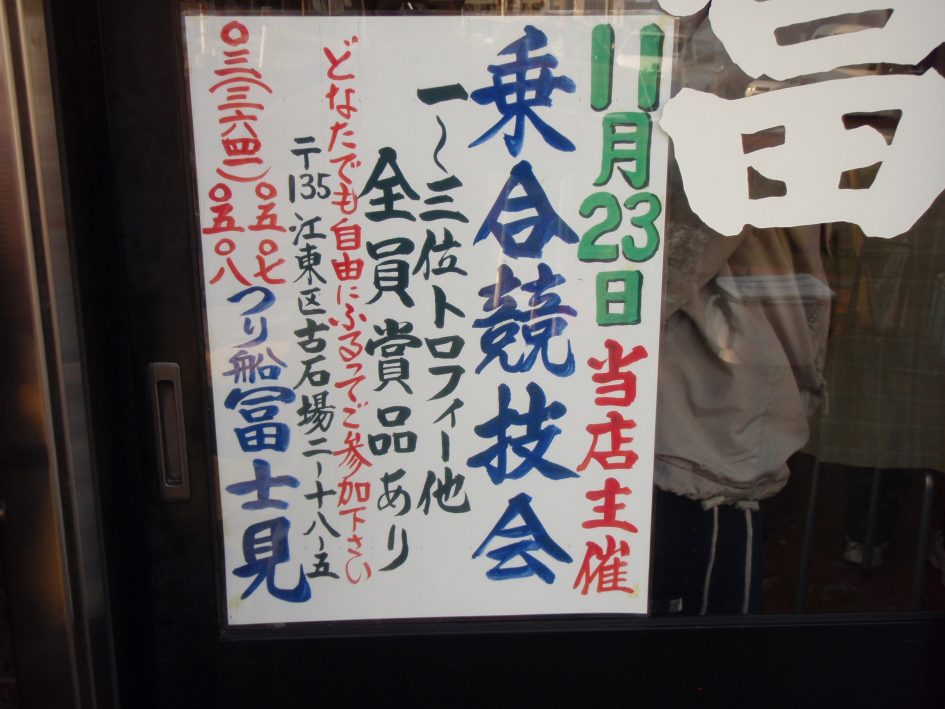 11月23日 当店主催
乗合競技会
一〜三位トロフィー他
全員賞品あり
どなたでも自由にふるってご参加下さい
〒135 江東区古石場二-十八-五
〇三(三六四一)〇五〇七
〇五〇八
つり船冨士見